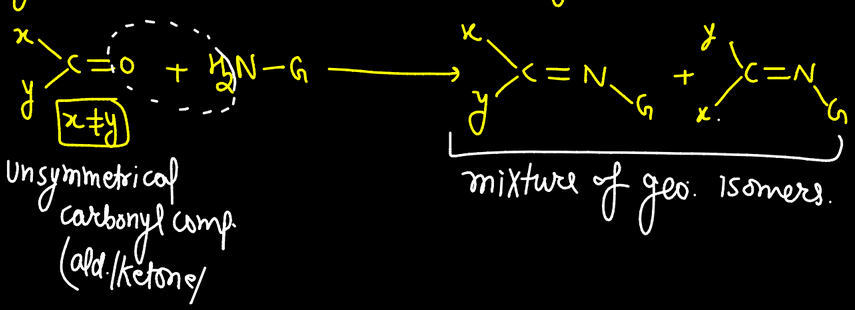 x y C=O + H2N-G → x y C=N-G + y x. C=N-G
x≠y
unsymmetrical
carbonyl comp.
(ald./ketone/
mixture of geo. isomers.